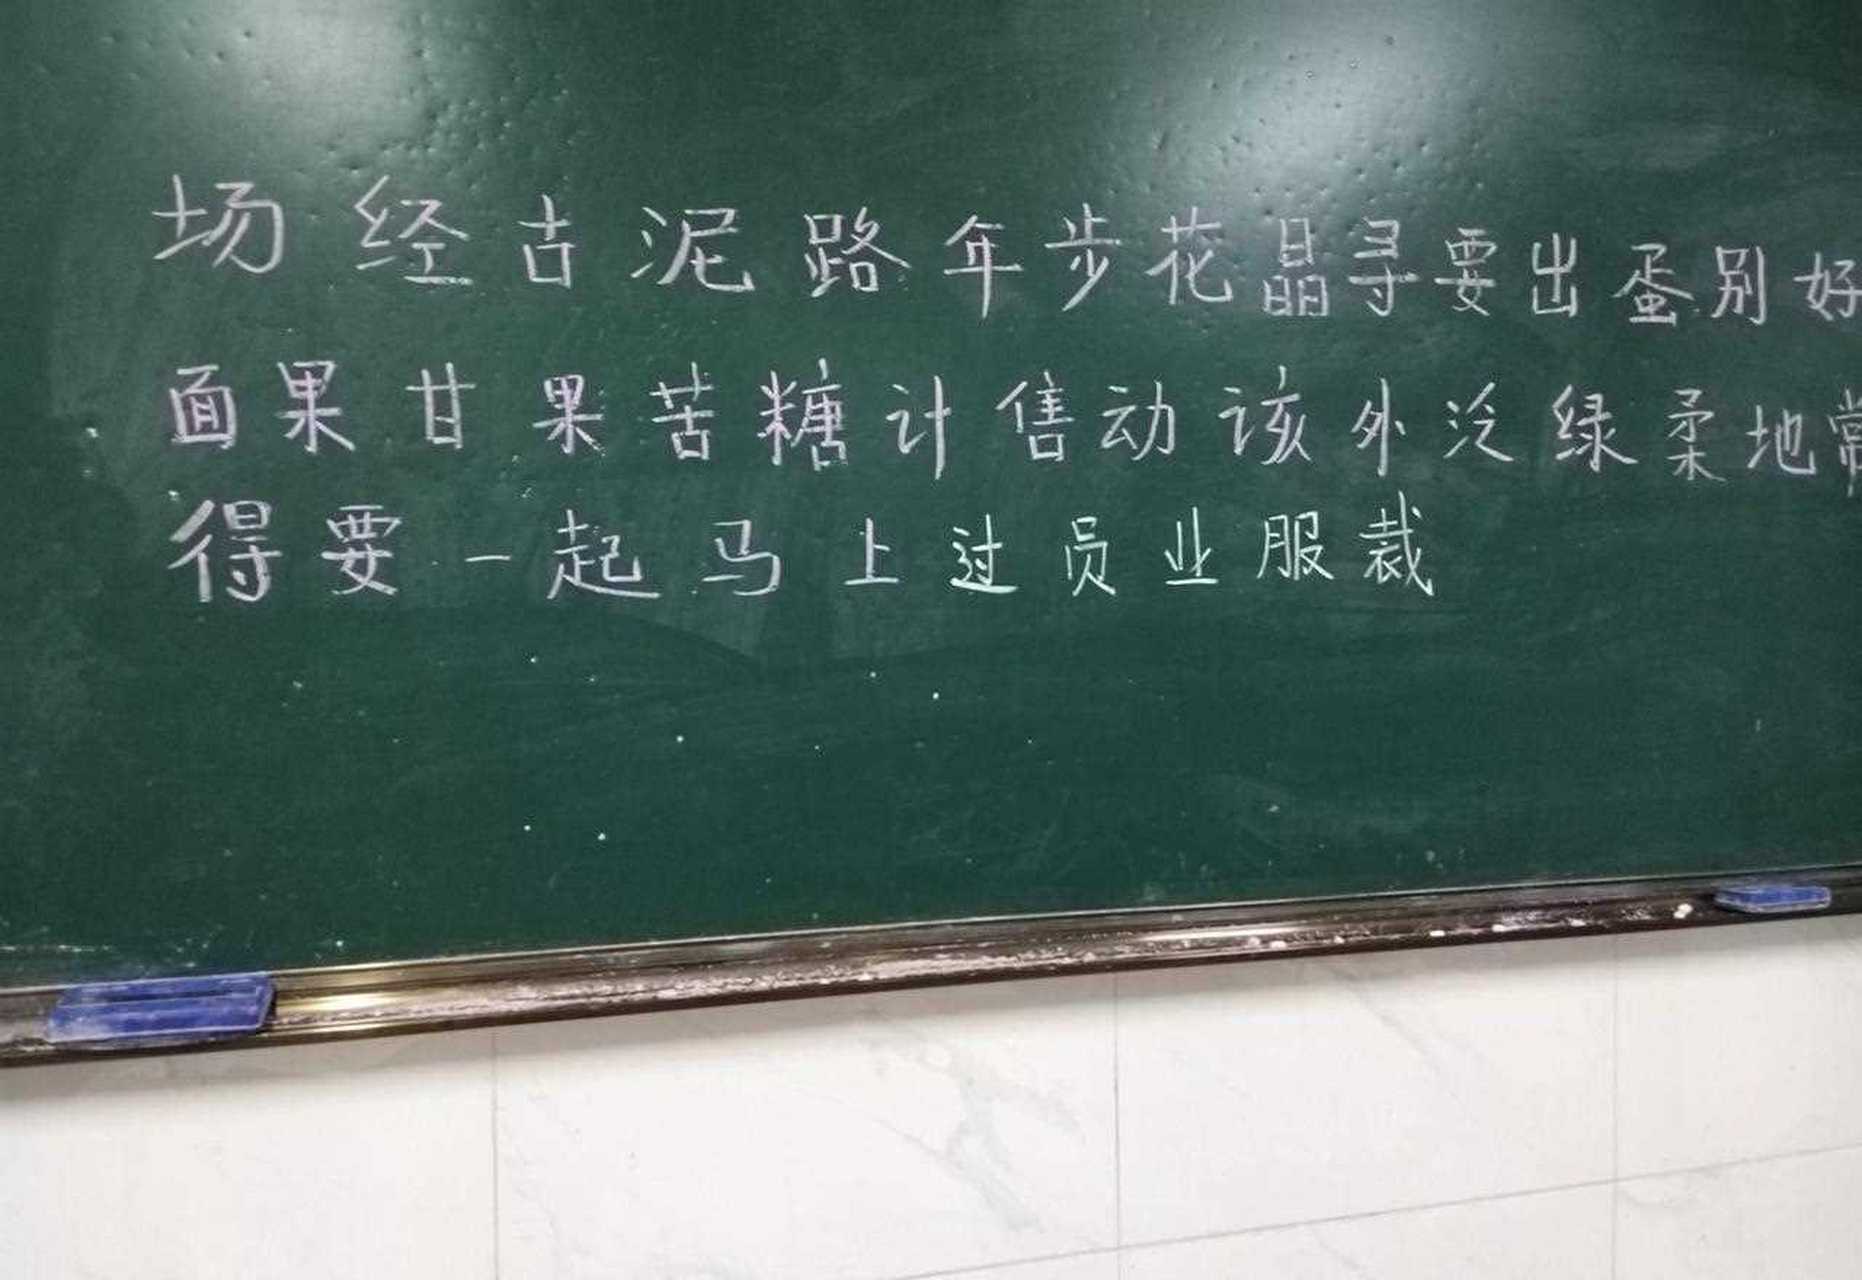 场经古泥路年步花晶寻要出蛋别好
面果甘果苦糖计售动该外泛绿柔地常
得要一起马上过员业服裁